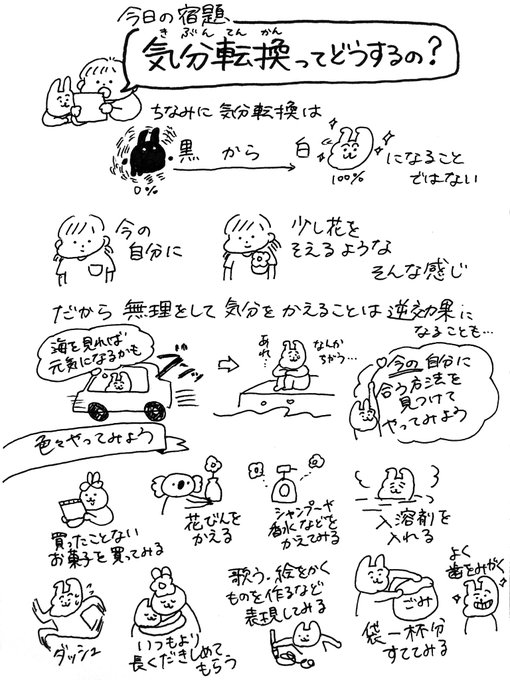 今日の宿題
きぶんてんかん
気分転換ってどうするの?
ちなみに 気分転換は
黒 から 白 になること
0% 100% ではない
今の
自分に
少し花を
そえるような
そんな感じ
だから 無理をして 気分を かえることは 逆効果に
なることも…
海を見れば
元気になるかも
あれ…
なんか
ちがう…
今の自分に
合う方法を
見つけて
やってみよう
色々やってみよう
買ったことない
お菓子を買ってみる
花びんを
かえる
シャンプーや
香水などを
かえてみる
入溶剤を
入れる
ダッシュ
いつもより
長くだきしめて
もらう
歌う、絵をかく
ものを作るなど
表現してみる
ごみ
袋一杯分
すててみる
よく
歯をみがく